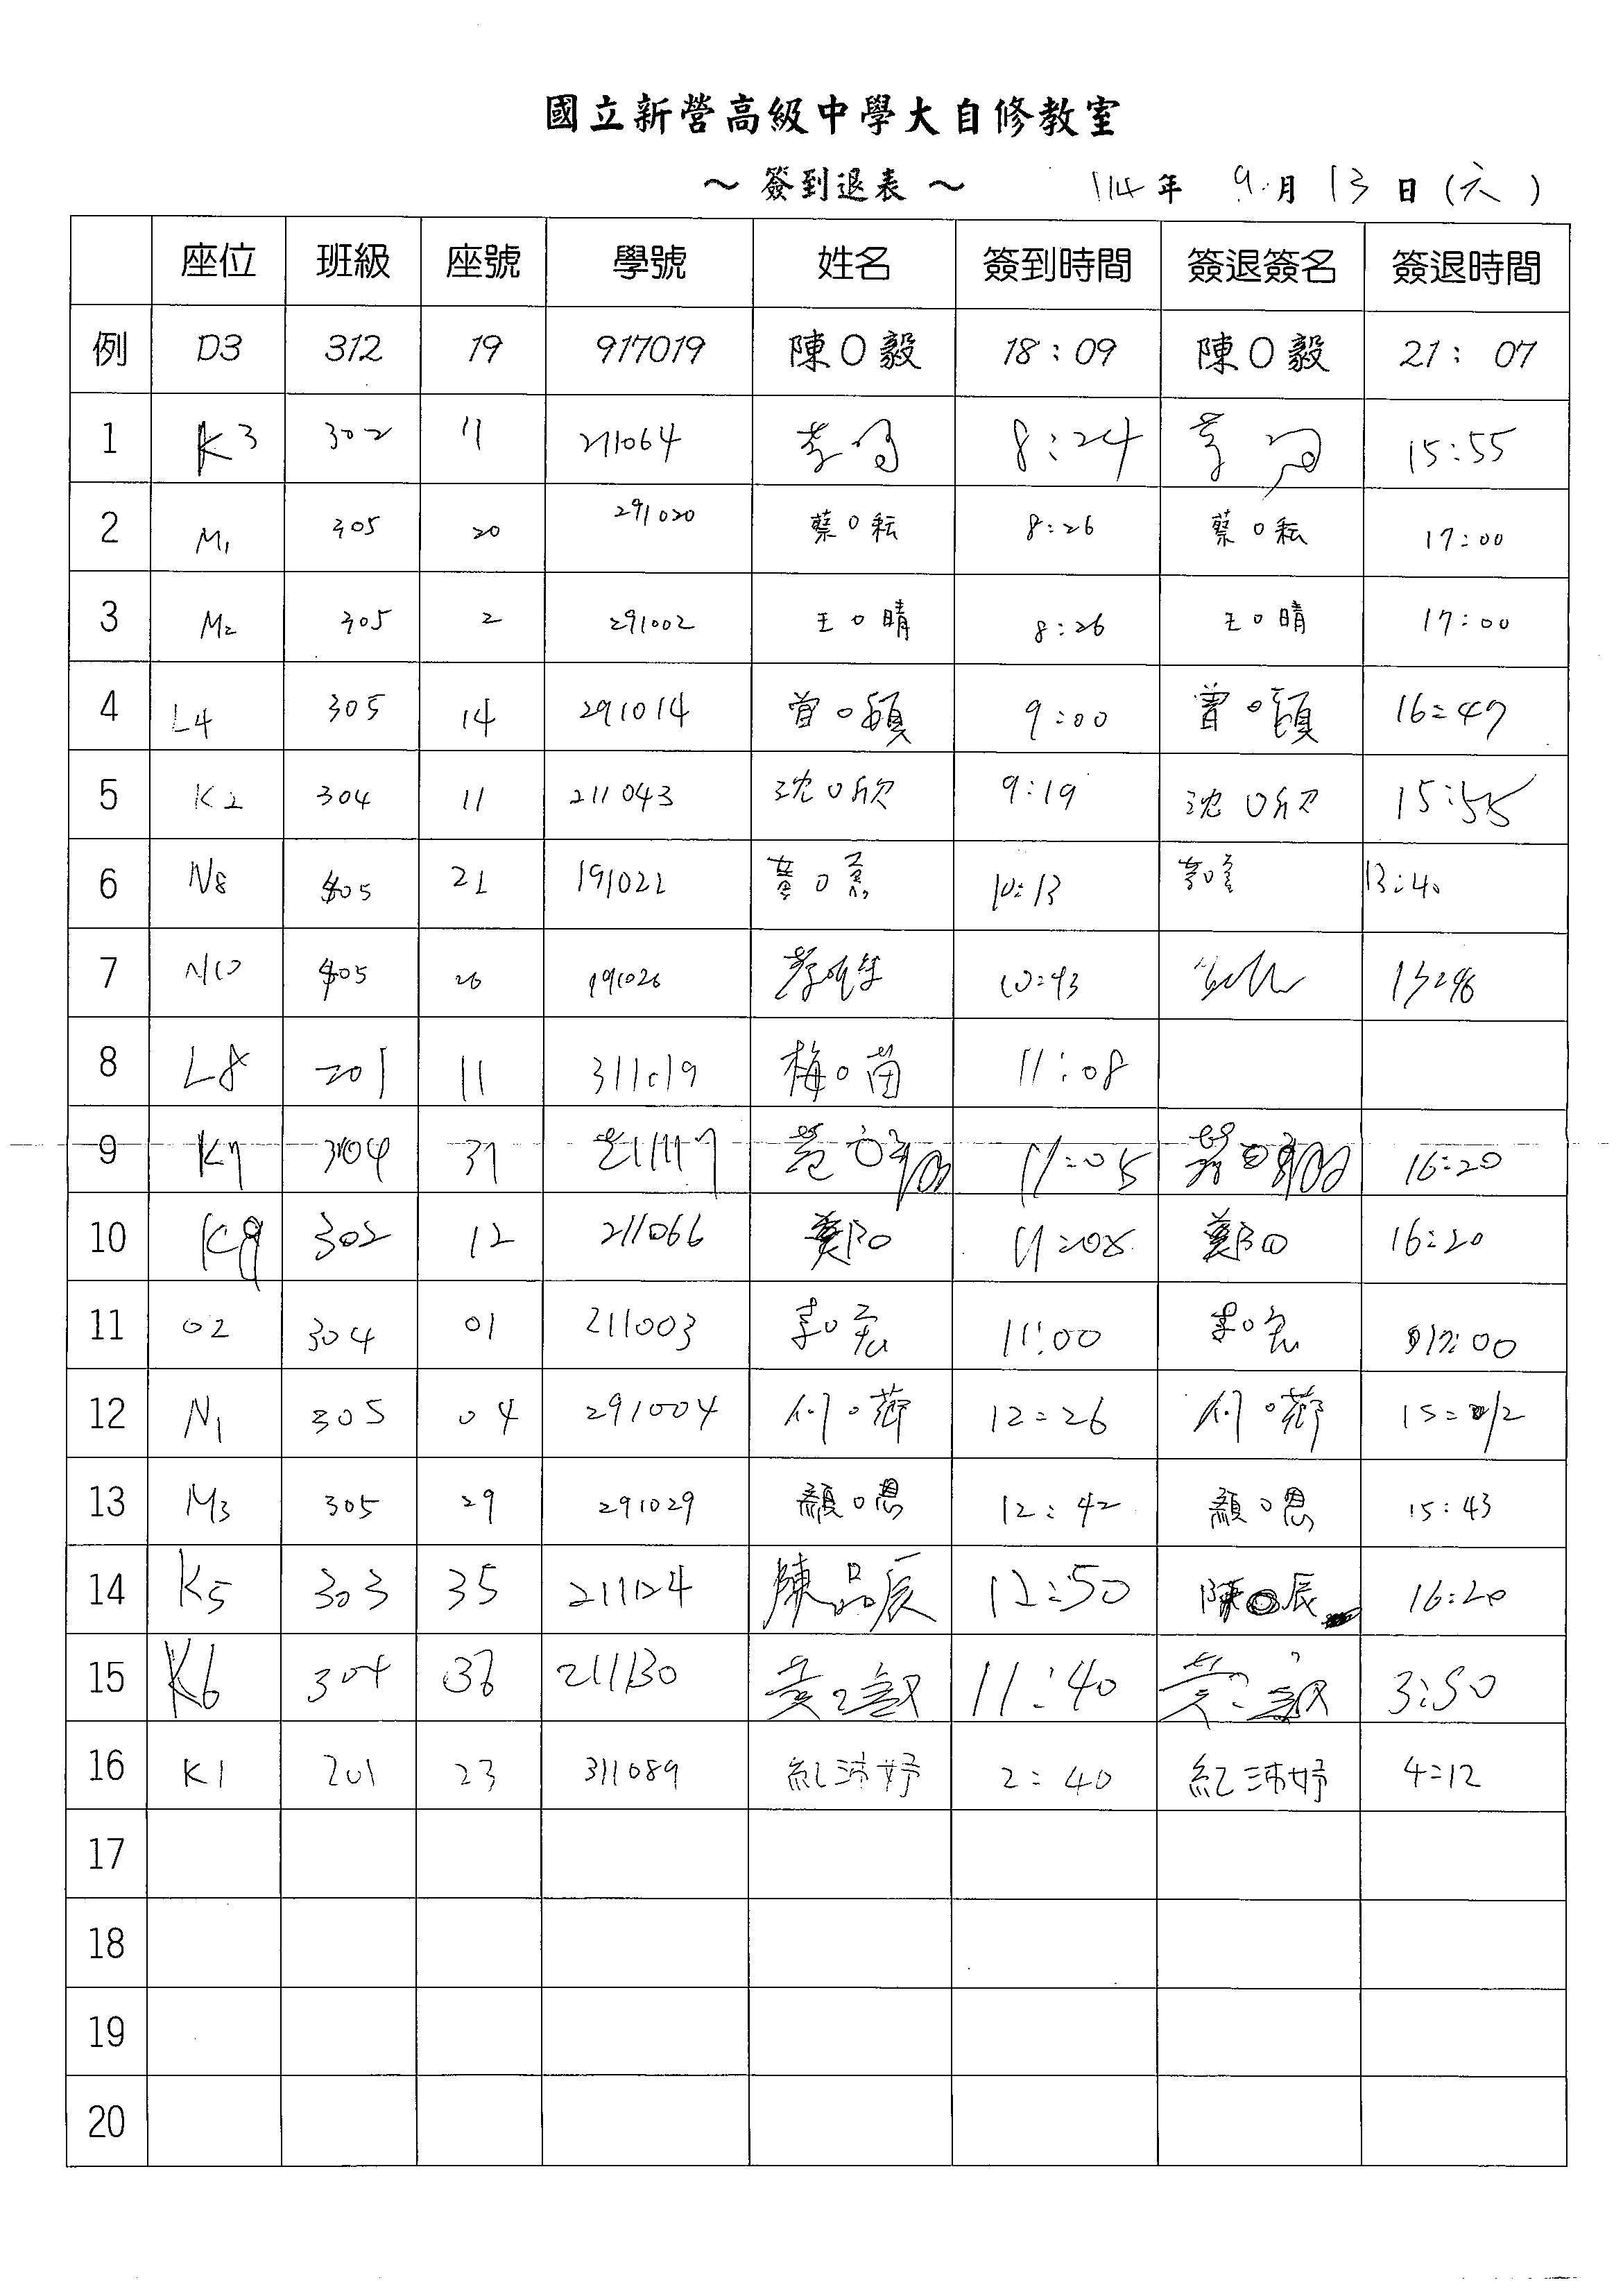 國立新營高級中學大自修教室
～ 簽到退表 ～ 114 年 9 月 13 日 (六)
座位 班級 座號 學號 姓名 簽到時間 簽退簽名 簽退時間
例 D3 312 19 917019 陳O毅 18:09 陳O毅 21:07
1 K3 302 11 211064 李 8:24 李 15:55
2 M1 305 20 291020 蔡O耘 8:26 蔡O耘 17:00
3 M2 305 2 291002 王O晴 8:26 王O晴 17:00
4 L4 305 14 291014 曾O頤 9:00 曾O頤 16:47
5 K2 304 11 211043 沈O欣 9:19 沈O欣 15:55
6 N8 405 21 191021 黃O熹 10:13 13:40
7 N10 405 26 191026 10:43 13:46
8 L8 201 11 311019 梅O茵 11:08
9 K7 304 37 11:05 16:20
10 K9 302 12 211066 鄭O 11:08 鄭O 16:20
11 O2 304 01 211003 李O宏 11:00 李O宏 17:00
12 N1 305 04 291004 何O薌 12:26 何O薌 15:12
13 M3 305 29 291029 顏O恩 12:42 顏O恩 15:43
14 K5 303 35 211124 陳品辰 12:50 陳O辰 16:20
15 K6 304 38 211130 黃O叡 11:40 黃O叡 3:50
16 K1 201 23 311089 紀沛妤 2:40 紀沛妤 4:12
17
18
19
20